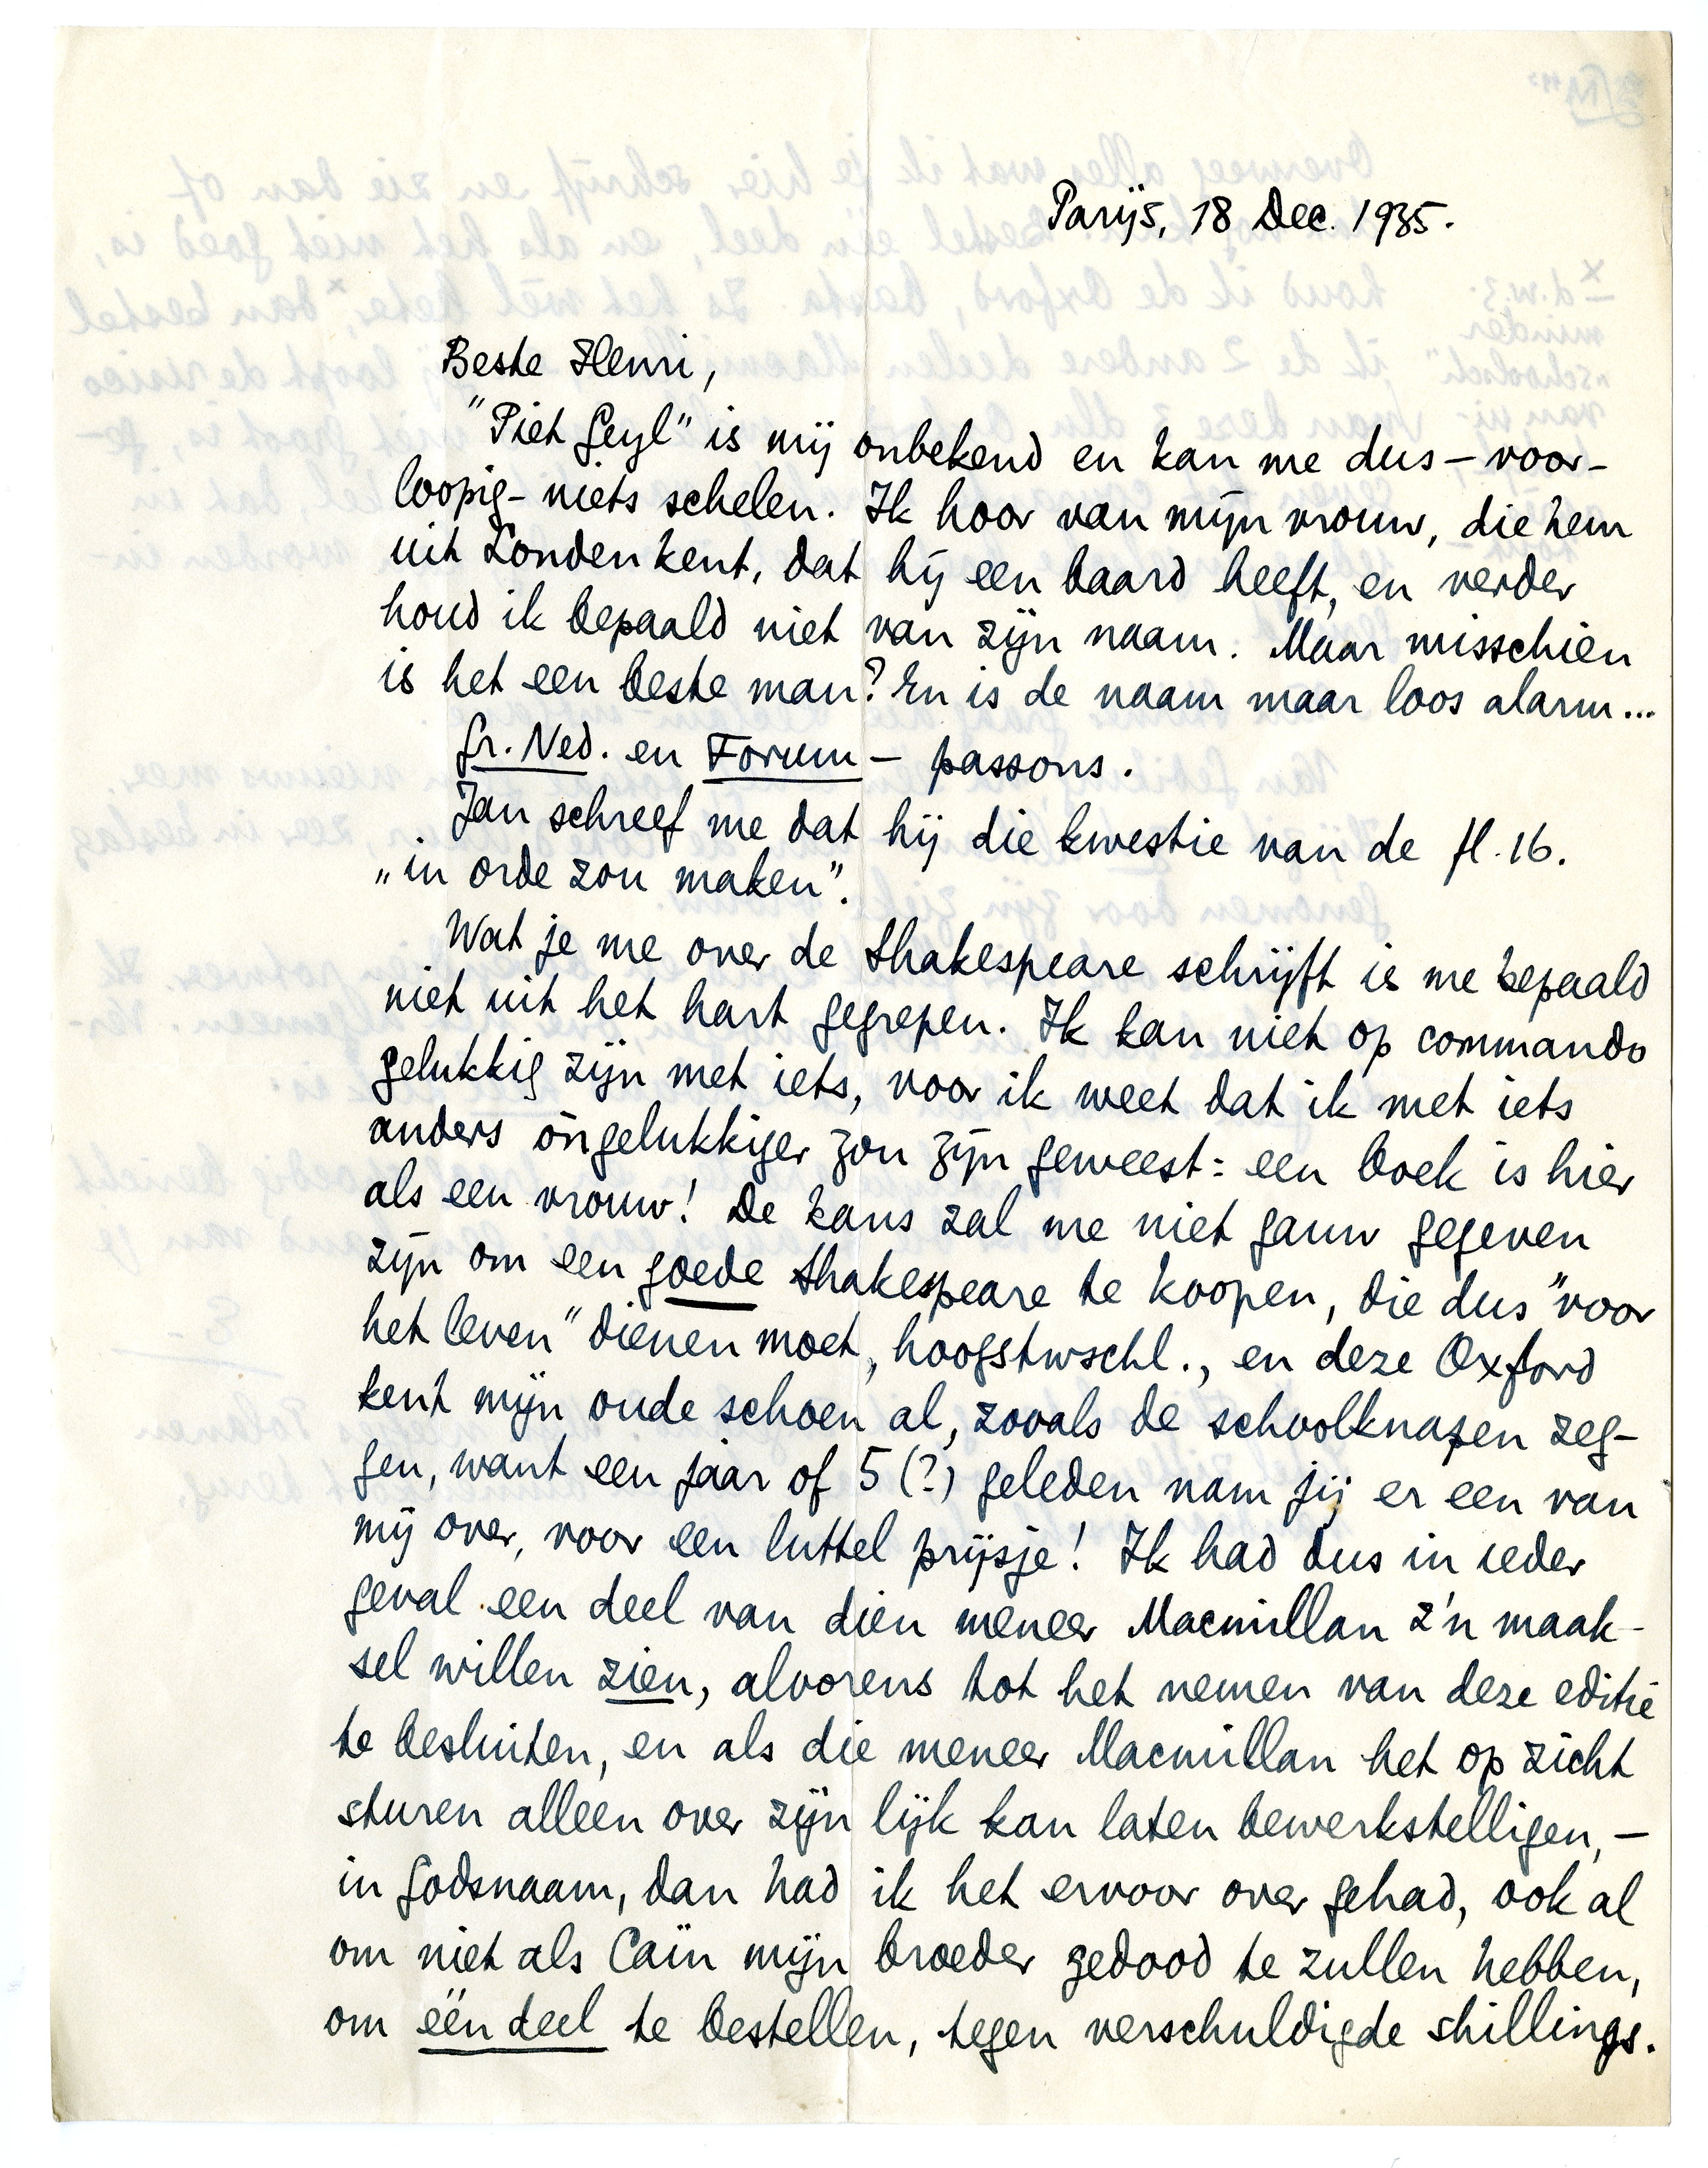 Parijs, 18 Dec. 1935.
Beste Henri,
"Piet Geyl" is mij onbekend en kan me dus – voor-
loopig – niets schelen. Ik hoor van mijn vrouw, die hem
uit Londen kent, dat hij een baard heeft, en verder
houd ik bepaald niet van zijn naam. Maar misschien
is het een beste man? En is de naam maar loos alarm...
Gr. Ned. en Forum – passons.
Jan schreef me dat hij die kwestie van de fl. 16.
„in orde zou maken".
Wat je me over de Shakespeare schrijft is me bepaald
niet uit het hart gegrepen. Ik kan niet op commando
gelukkig zijn met iets, voor ik weet dat ik met iets
anders óngelukkiger zou zijn geweest: een boek is hier
als een vrouw! De kans zal me niet gauw gegeven
zijn om een goede Shakespeare te koopen, die dus "voor
het leven" dienen moet, hoogstwschl., en deze Oxford
kent mijn oude schoen al, zooals de schoolknapen zeg-
gen, want een jaar of 5 (?) geleden nam jij er een van
mij over, voor een luttel prijsje! Ik had dus in ieder
geval een deel van dien meneer Macmillan z'n maak-
sel willen zien, alvorens tot het nemen van deze editie
te besluiten, en als die meneer Macmillan het op zicht
sturen alleen over zijn lijk kan laten bewerkstelligen, –
in Godsnaam, dan had ik het ervoor over gehad, ook al
om niet als Caïn mijn broeder gedood te zullen hebben,
om één deel te bestellen, tegen verschuldigde shillings.